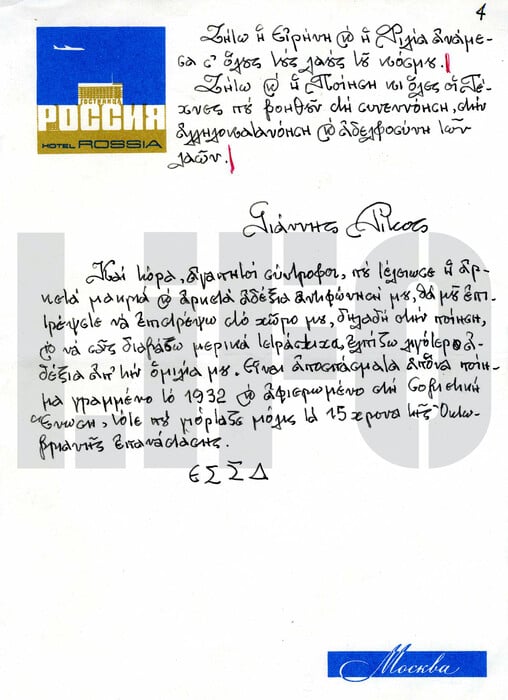 4
ГОСТИНИЦА
РОССИЯ
HOTEL ROSSIA
Ζήτω ἡ Εἰρήνη ϗ ἡ Φιλία ἀνάμε-
σα σ' ὅλους τοὺς λαοὺς τοῦ κόσμου.
Ζήτω ϗ ἡ Ποίηση κι ὅλες οἱ Τέ-
χνες ποὺ βοηθοῦν στὴ συνεννόηση, στὴν
ἀλληλοκατανόηση ϗ ἀδελφοσύνη τῶν
λαῶν.
Γιάννης Ρίτσος
Καὶ τώρα, ἀγαπητοὶ σύντροφοι, ποὺ τέλειωσε ἡ ἀρ-
κετὰ μακριὰ ϗ ἀρκετὰ ἀδέξια ἀντιφώνησή μου, θὰ μοῦ ἐπι-
τρέψετε νὰ ἐπιστρέψω στὸ χῶρο μου, δηλαδὴ στὴν ποίηση,
ϗ νὰ σᾶς διαβάσω μερικὰ τετράστιχα, ἐλπίζω λιγότερο ἀ-
δέξια ἀπ' τὴν ὁμιλία μου. Εἶναι ἀποσπάσματα ἀπὄνα ποίη-
μα γραμμένο τὸ 1932 ϗ ἀφιερωμένο στὴ Σοβιετικὴ
Ἕνωση, τότε ποὺ γιόρταζε μόλις τὰ 15 χρονα τῆς Ὀκτω-
βριανῆς Ἐπανάστασης.
ΕΣΣΔ
LIFO
Москва